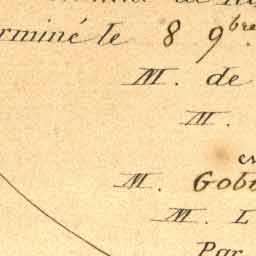 erminé le 8 9bre
M. de
M.
M. Gob
M. L
Par